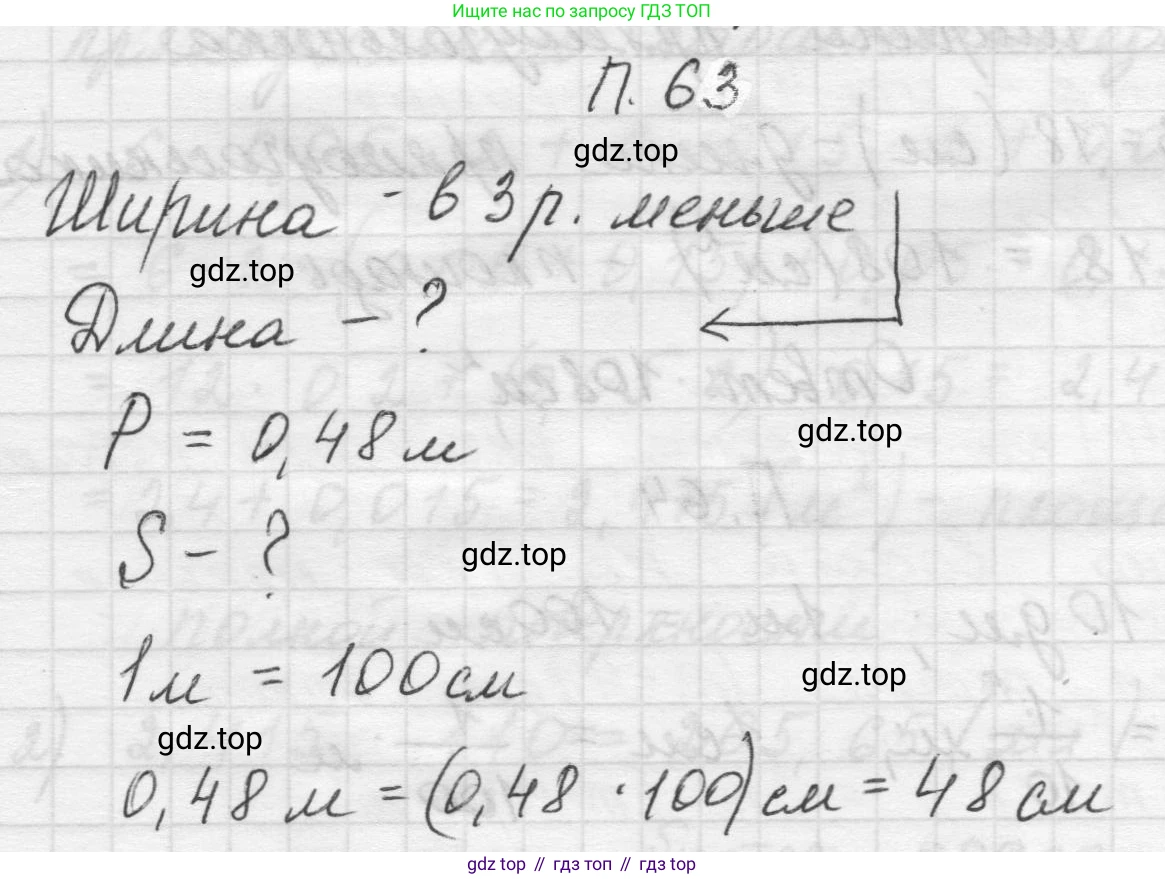 Ищите нас по запросу ГДЗ ТОП
П. 63
gdz.top
Ширина - в 3 р. меньше
gdz.top
Длина - ?
P = 0,48 м
gdz.top
S - ?
gdz.top
1 м = 100 см
gdz.top
gdz.top
0,48 м = (0,48 · 100) см = 48 см
gdz top // гдз топ // гдз top